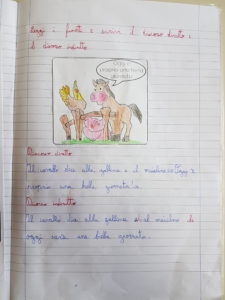 Leggi il fumetto e scrivi il discorso diretto e
il discorso indiretto
Oggi è
proprio una bella
giornata!
Discorso diretto
Il cavallo dice alla gallina e il maialino: «Oggi è
proprio una bella giornata!».
Discorso indiretto
Il cavallo dice alla gallina e al maialino che
oggi sarà una bella giornata.